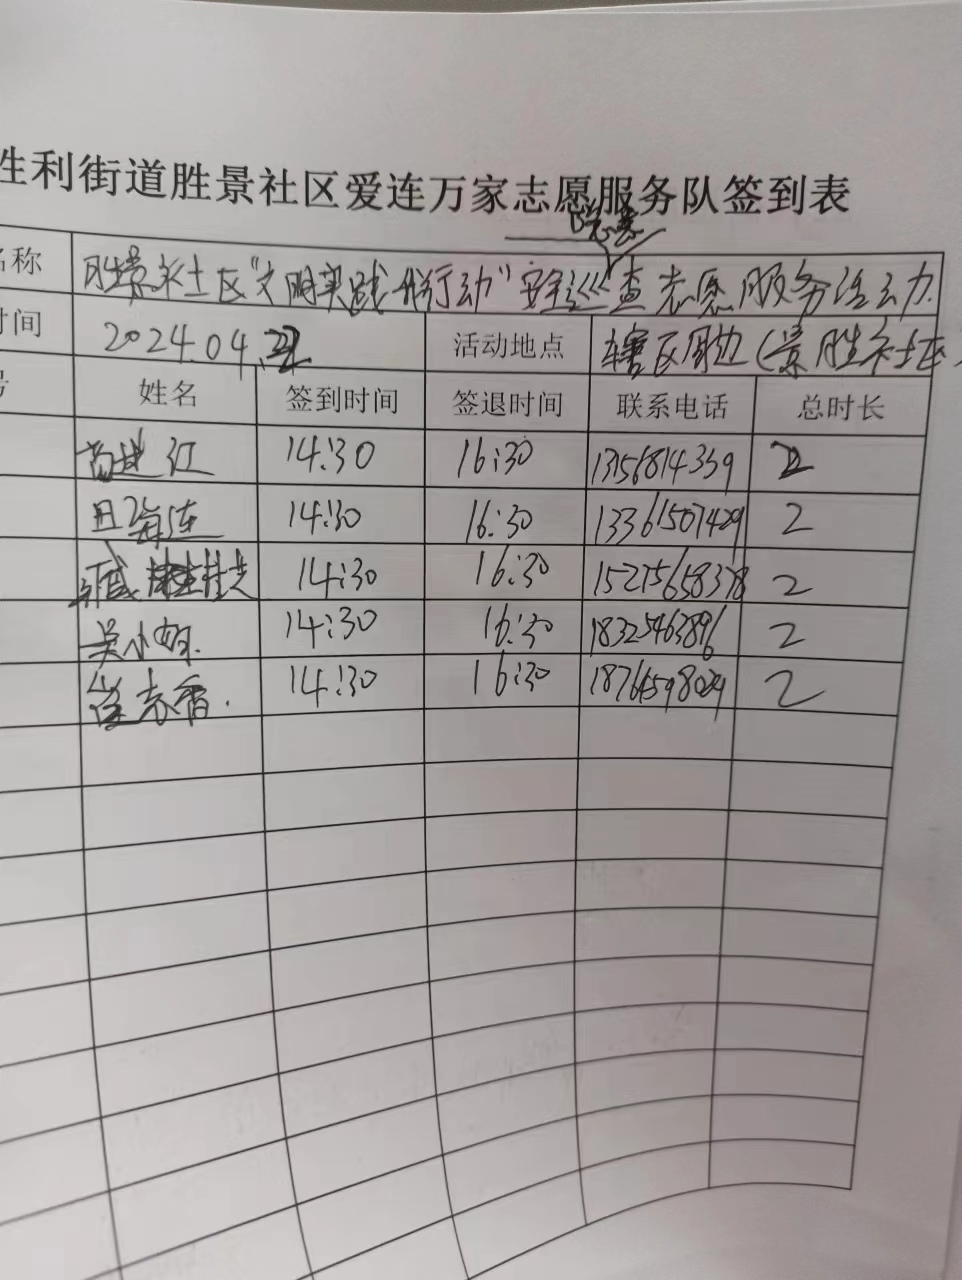 胜利街道胜景社区爱连万家志愿服务队签到表
名称 胜景社区"文明实践我行动"安全巡查志愿服务活动
时间 2024.04. 活动地点 辖区周边(景胜社区
号 姓名 签到时间 签退时间 联系电话 总时长
红 14:30 16:30 13156814359 2
吕海连 14:30 16:30 13361507429 2
臧 14:30 16:30 15275658378 2
吴小丽 14:30 16:30 18325463896 2
崔志香. 14:30 16:30 18764598029 2